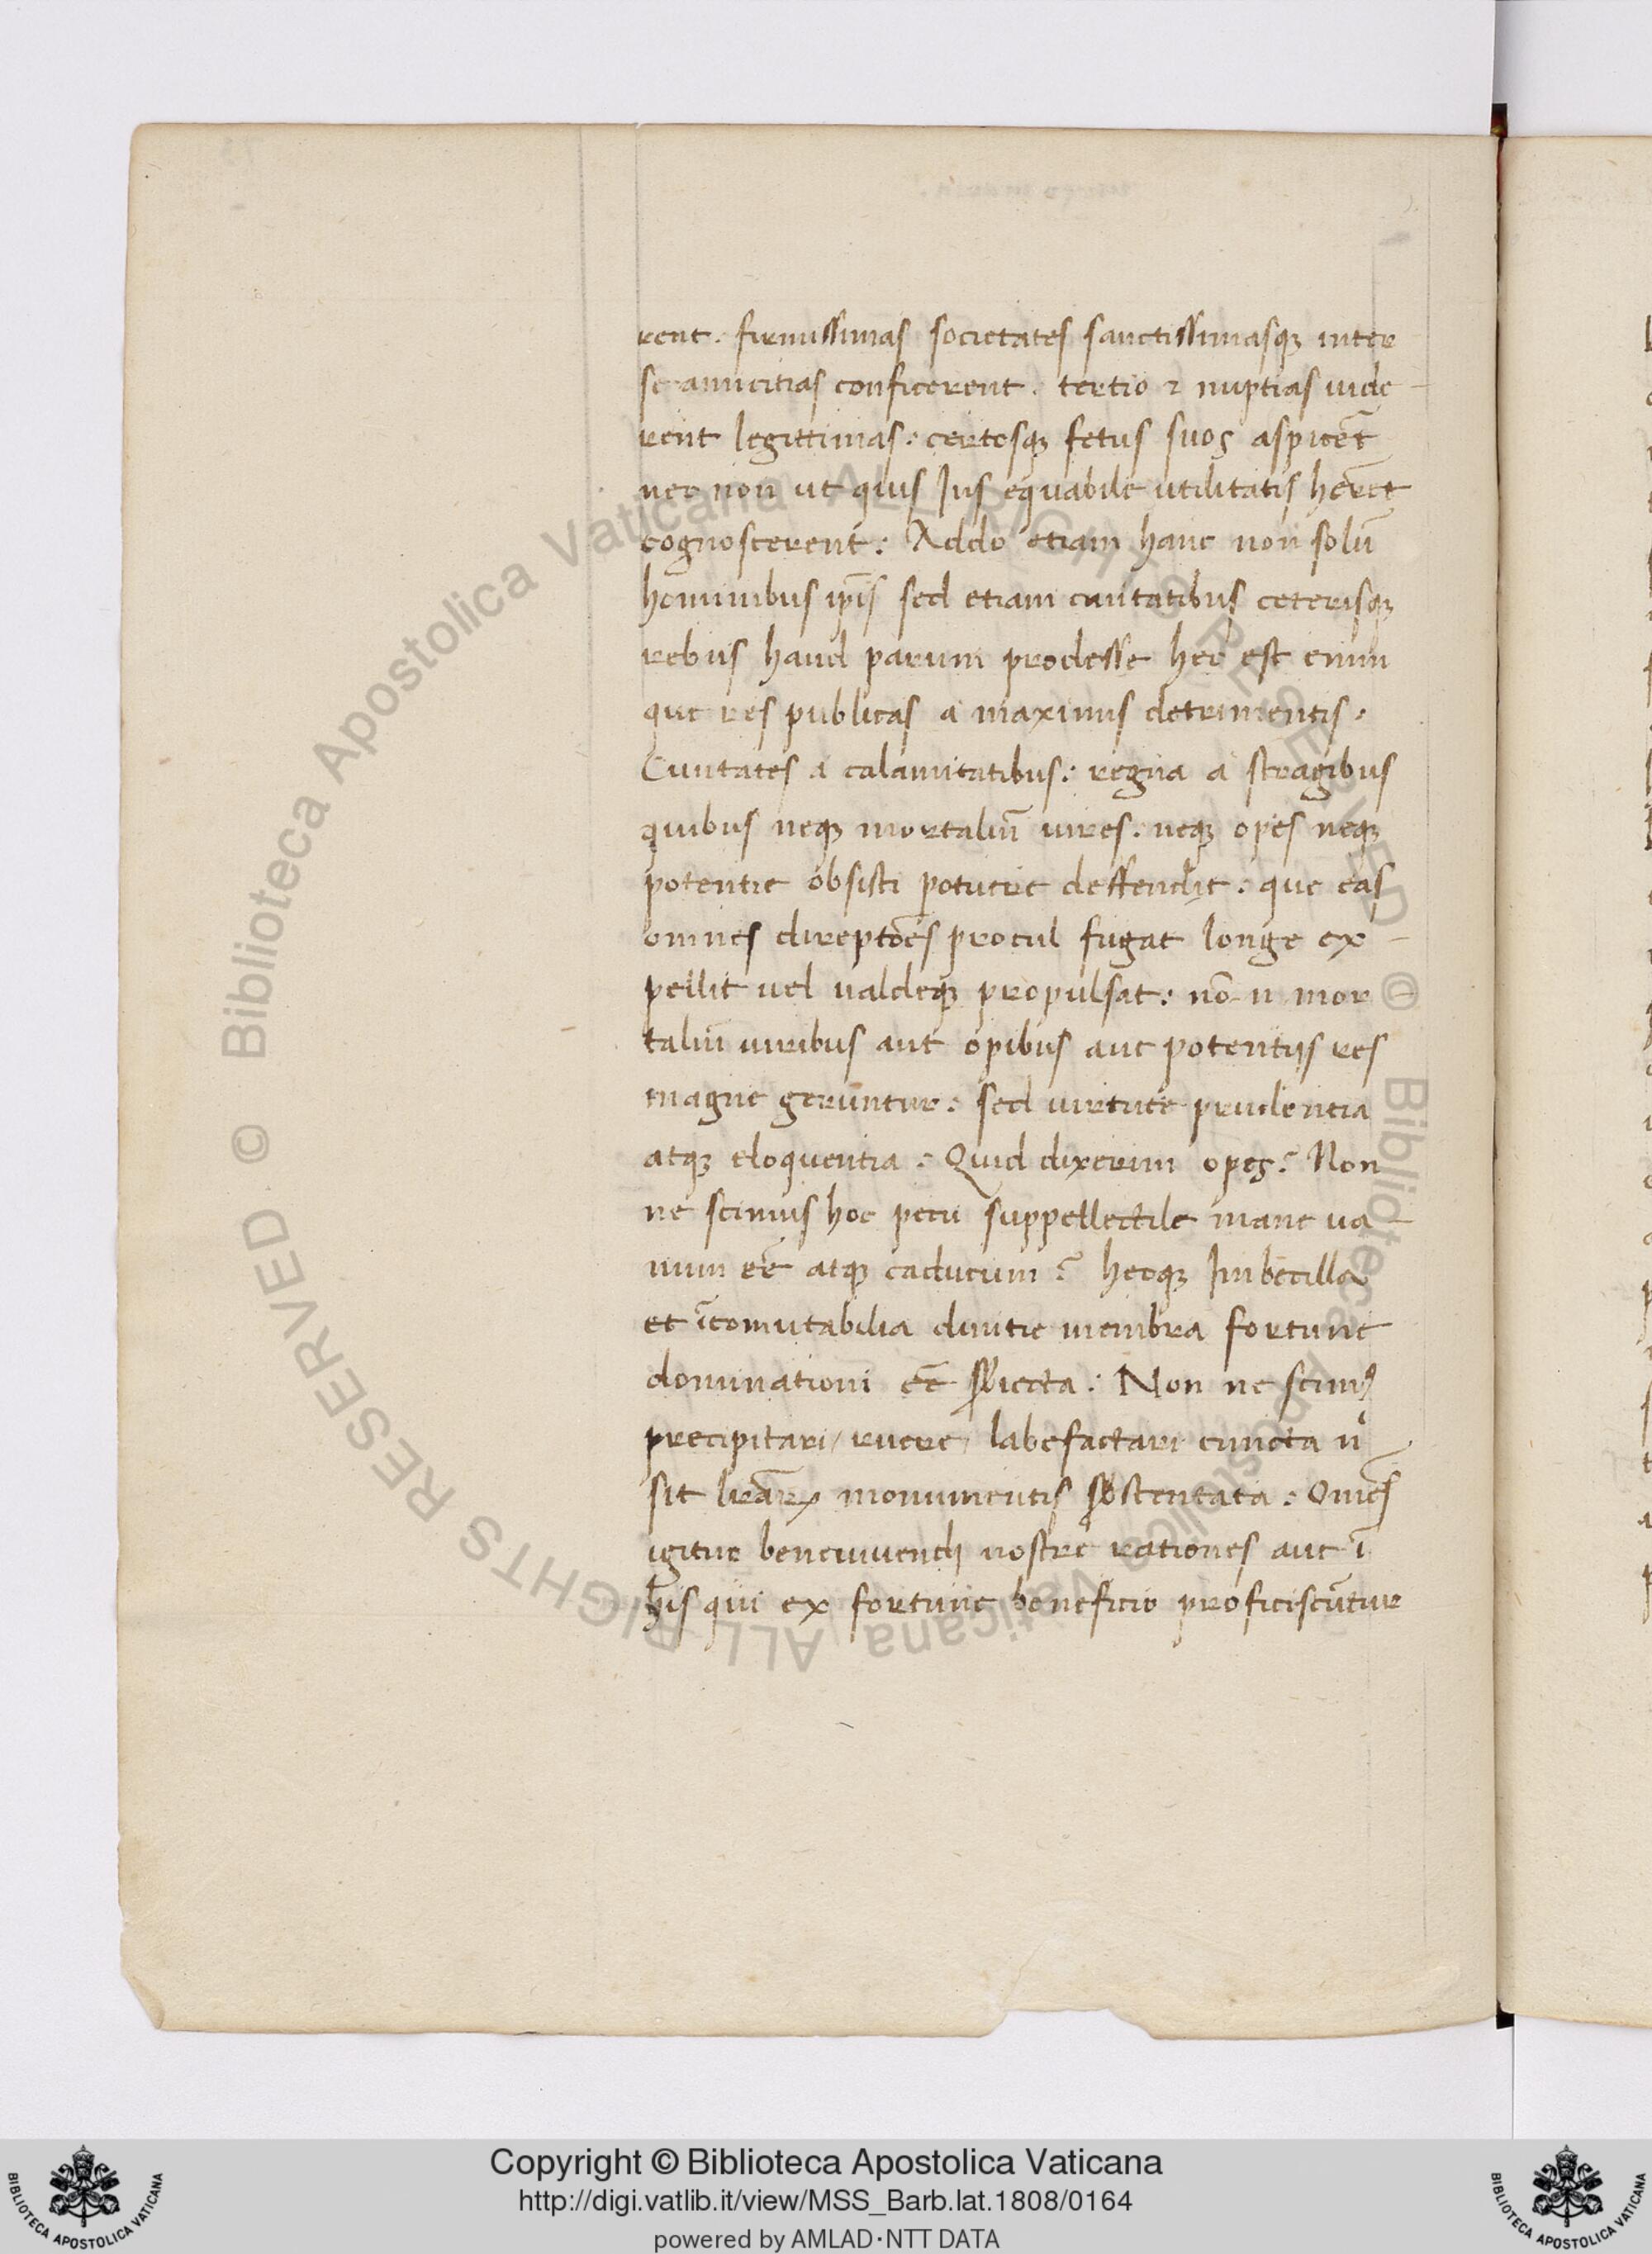 rent. firmissimas societates sanctissimasqꝫ inter
se amicitias conficerent. tertio ⁊ nuptias uide
rent legittimas: certosqꝫ fetus suos aspicẽt
nec non ut quis Jus equabile utilitatis hẽret
cognoscerent: Addo etiam hanc non solũ
hominibus ip̃is sed etiam ciuitatibus ceterisqꝫ
rebus haud parum prodesse hec est enim
que res publicas a maximis detrimentis.
Ciuitates a calamitatibus: regna a stragibus
quibus neqꝫ mortaliũ uires. neqꝫ opes neqꝫ
potentie obsisti potuere deffendit: que eas
omnes direptões procul fugat longe ex
pellit uel ualdeqꝫ propulsat: nõ n mor
taliũ uiribus aut opibus aut potentijs res
magne geruntur: sed uirtute prudentia
atqꝫ eloquentia: Quid dixerim opes? Non
ne scimus hoc pecu suppellectile inane ua
num eẽ atqꝫ caducum? hecqꝫ Imbecilla
et ĩcomutabilia diuitie membra fortune
dominationi eẽ sbiecta: Non ne scimꝰ
precipitari / ruere / labefactari cuncta n
sit lrãrꝫ monumentis sostentata: Om̃es
igitur beneuiuendi nostre rationes aut ĩ
his qui ex fortune beneficio proficiscũtur
Copyright © Biblioteca Apostolica Vaticana
http://digi.vatlib.it/view/MSS_Barb.lat.1808/0164
powered by AMLAD·NTT DATA